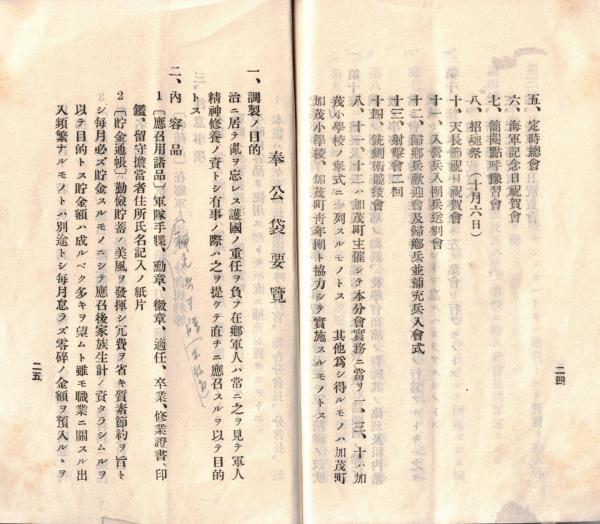 五、定時總會
六、海軍記念日祝賀會
七、簡閲點呼豫習會
八、招魂祭（十月六日）
十、天長節祝日祝賀會
十一、入營兵入團兵送別會
十二、歸鄕兵歡迎會及歸鄕兵並補充兵入會式
十三、射擊會二囘
十四、銃劍術競技會
八、十、十一、十二ハ加茂町主催シテ本分會實務ニ當リ一、三、十ハ加
茂小學校ノ擧式ニ參列スルモノトス　其他爲シ得ルモノハ加茂町
加茂小學校、加茂町靑年團ト協力シテ實施スルモノトス
二四
奉公袋要覽
一、調製ノ目的
治ニ居テ亂ヲ忘レス護國ノ重任ヲ負テ在鄕軍人ハ常ニ之ヲ見テ軍人
精神修養ノ資トシ有事ノ際ハ之ヲ提ケテ直チニ應召スルヲ以テ目的
トス
二、內容品
1〔應召用諸品〕軍隊手牒、勳章、徽章、適任、卒業、修業證書、印
鑑、留守擔當者住所氏名記入ノ紙片
2〔貯金通帳〕勤儉貯蓄ノ美風ヲ發揮シ冗費ヲ省キ質素節約ヲ旨ト
シ每月必ズ貯金スルモノニシテ應召後家族生計ノ資タラシムルヲ
以テ目的トス貯金額ハ成ルベク多キヲ望ムト雖モ職業ニ關スル出
入頻繁ナルモノトハ別途トシ每月怠ラズ零碎ノ金額ヲ預入ルヽヲ
二五